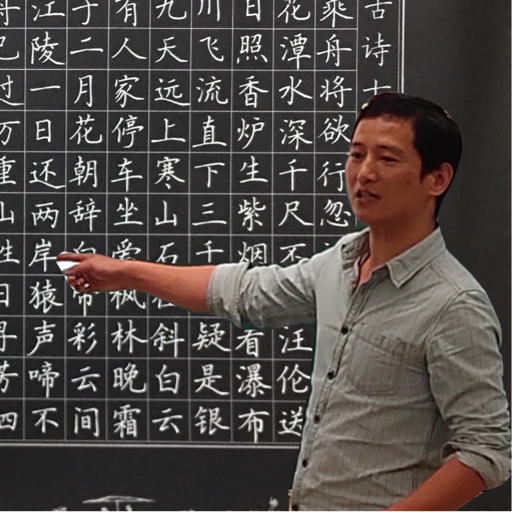 古诗
乘舟将欲行忽
花潭水深千尺不汪伦送
日照香炉生紫烟看瀑布
川飞流直下三千疑是银
九天远上寒山石斜白云
有人家停车坐爱枫林晚霜
子二月花朝辞白帝彩云间
江陵一日还两岸猿声啼不
舟已过万重山胜日寻芳四